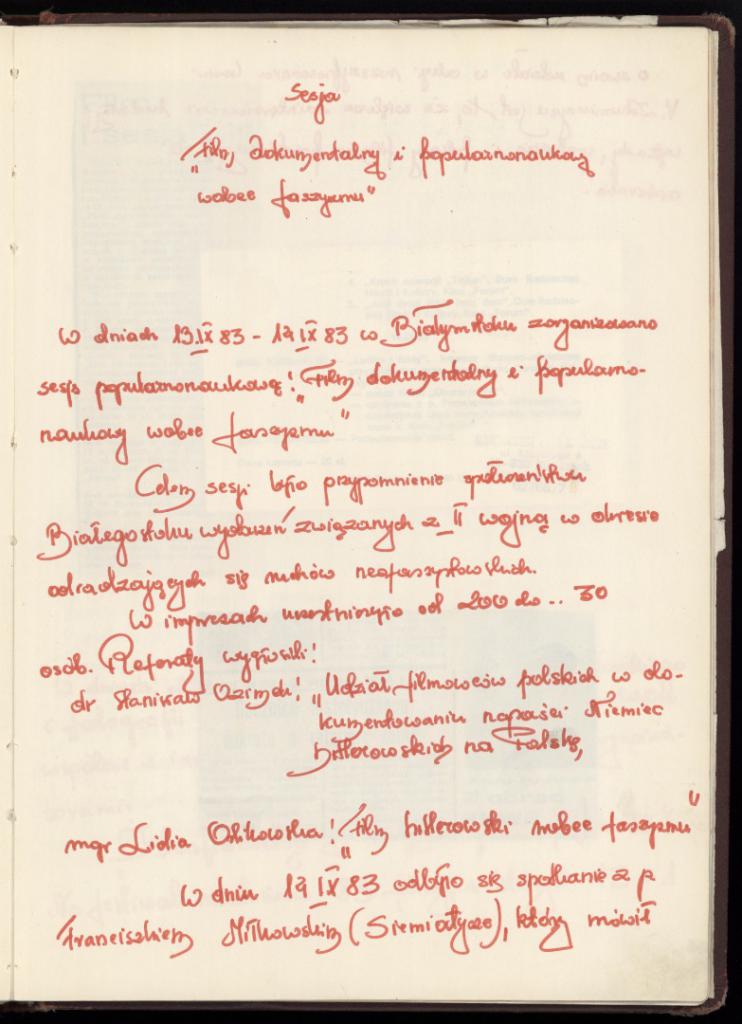 Sesja
"Film dokumentalny i popularnonaukowy
wobec faszyzmu"
W dniach 13.IX 83 - 14 IX 83 w Białymstoku zorganizowano
sesję popularnonaukową: "Film dokumentalny i popularno-
naukowy wobec faszyzmu"
Celem sesji było przypomnienie społeczeństwu
Białegostoku wydarzeń związanych z II wojną w okresie
odradzających się ruchów neofaszystowskich.
W imprezach uczestniczyło od 200 do .. 30
osób. Referaty wygłosili:
dr Stanisław Ozimek: "Udział filmowców polskich w do-
kumentowaniu napaści Niemiec
hitlerowskich na Polskę,
mgr Lidia : "Film hitlerowski wobec faszyzmu"
W dniu 14 IX 83 odbyło się spotkanie z p
Franciszkiem Miłkowskim (Siemiatycze), który mówił